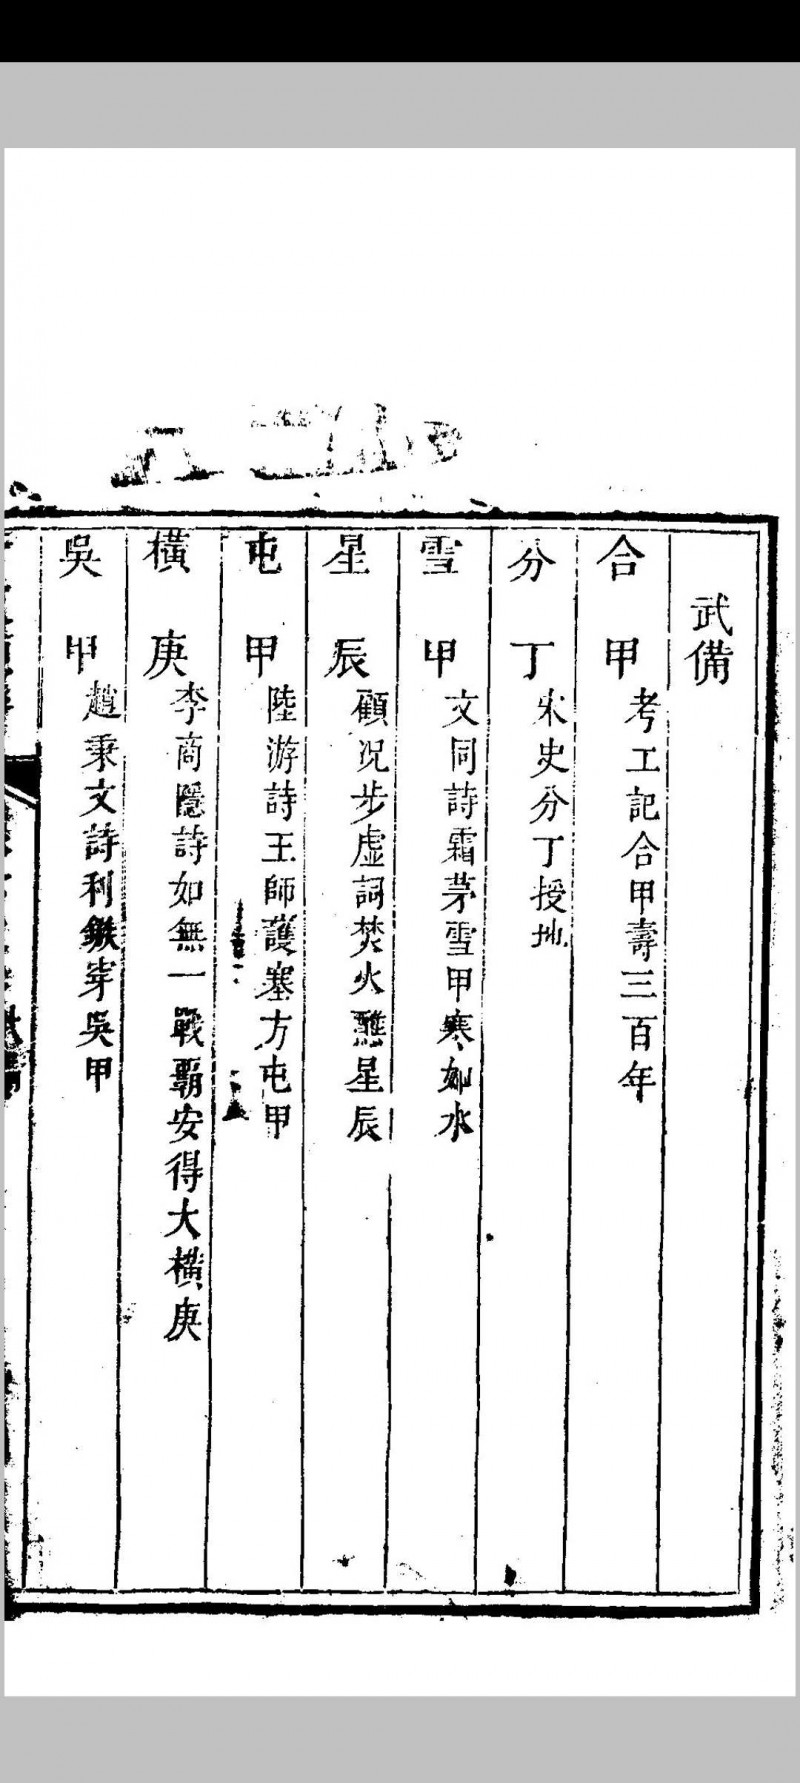 武備
合甲 考工記合甲壽三百年
分丁 宋史分丁授地
雪甲 文同詩霜茅雪甲寒如水
星辰 顧況步虛詞焚火醮星辰
屯甲 陸游詩王師護塞方屯甲
橫庚 李商隱詩如無一戰霸安得大橫庚
吳甲 趙秉文詩利鏃穿吳甲